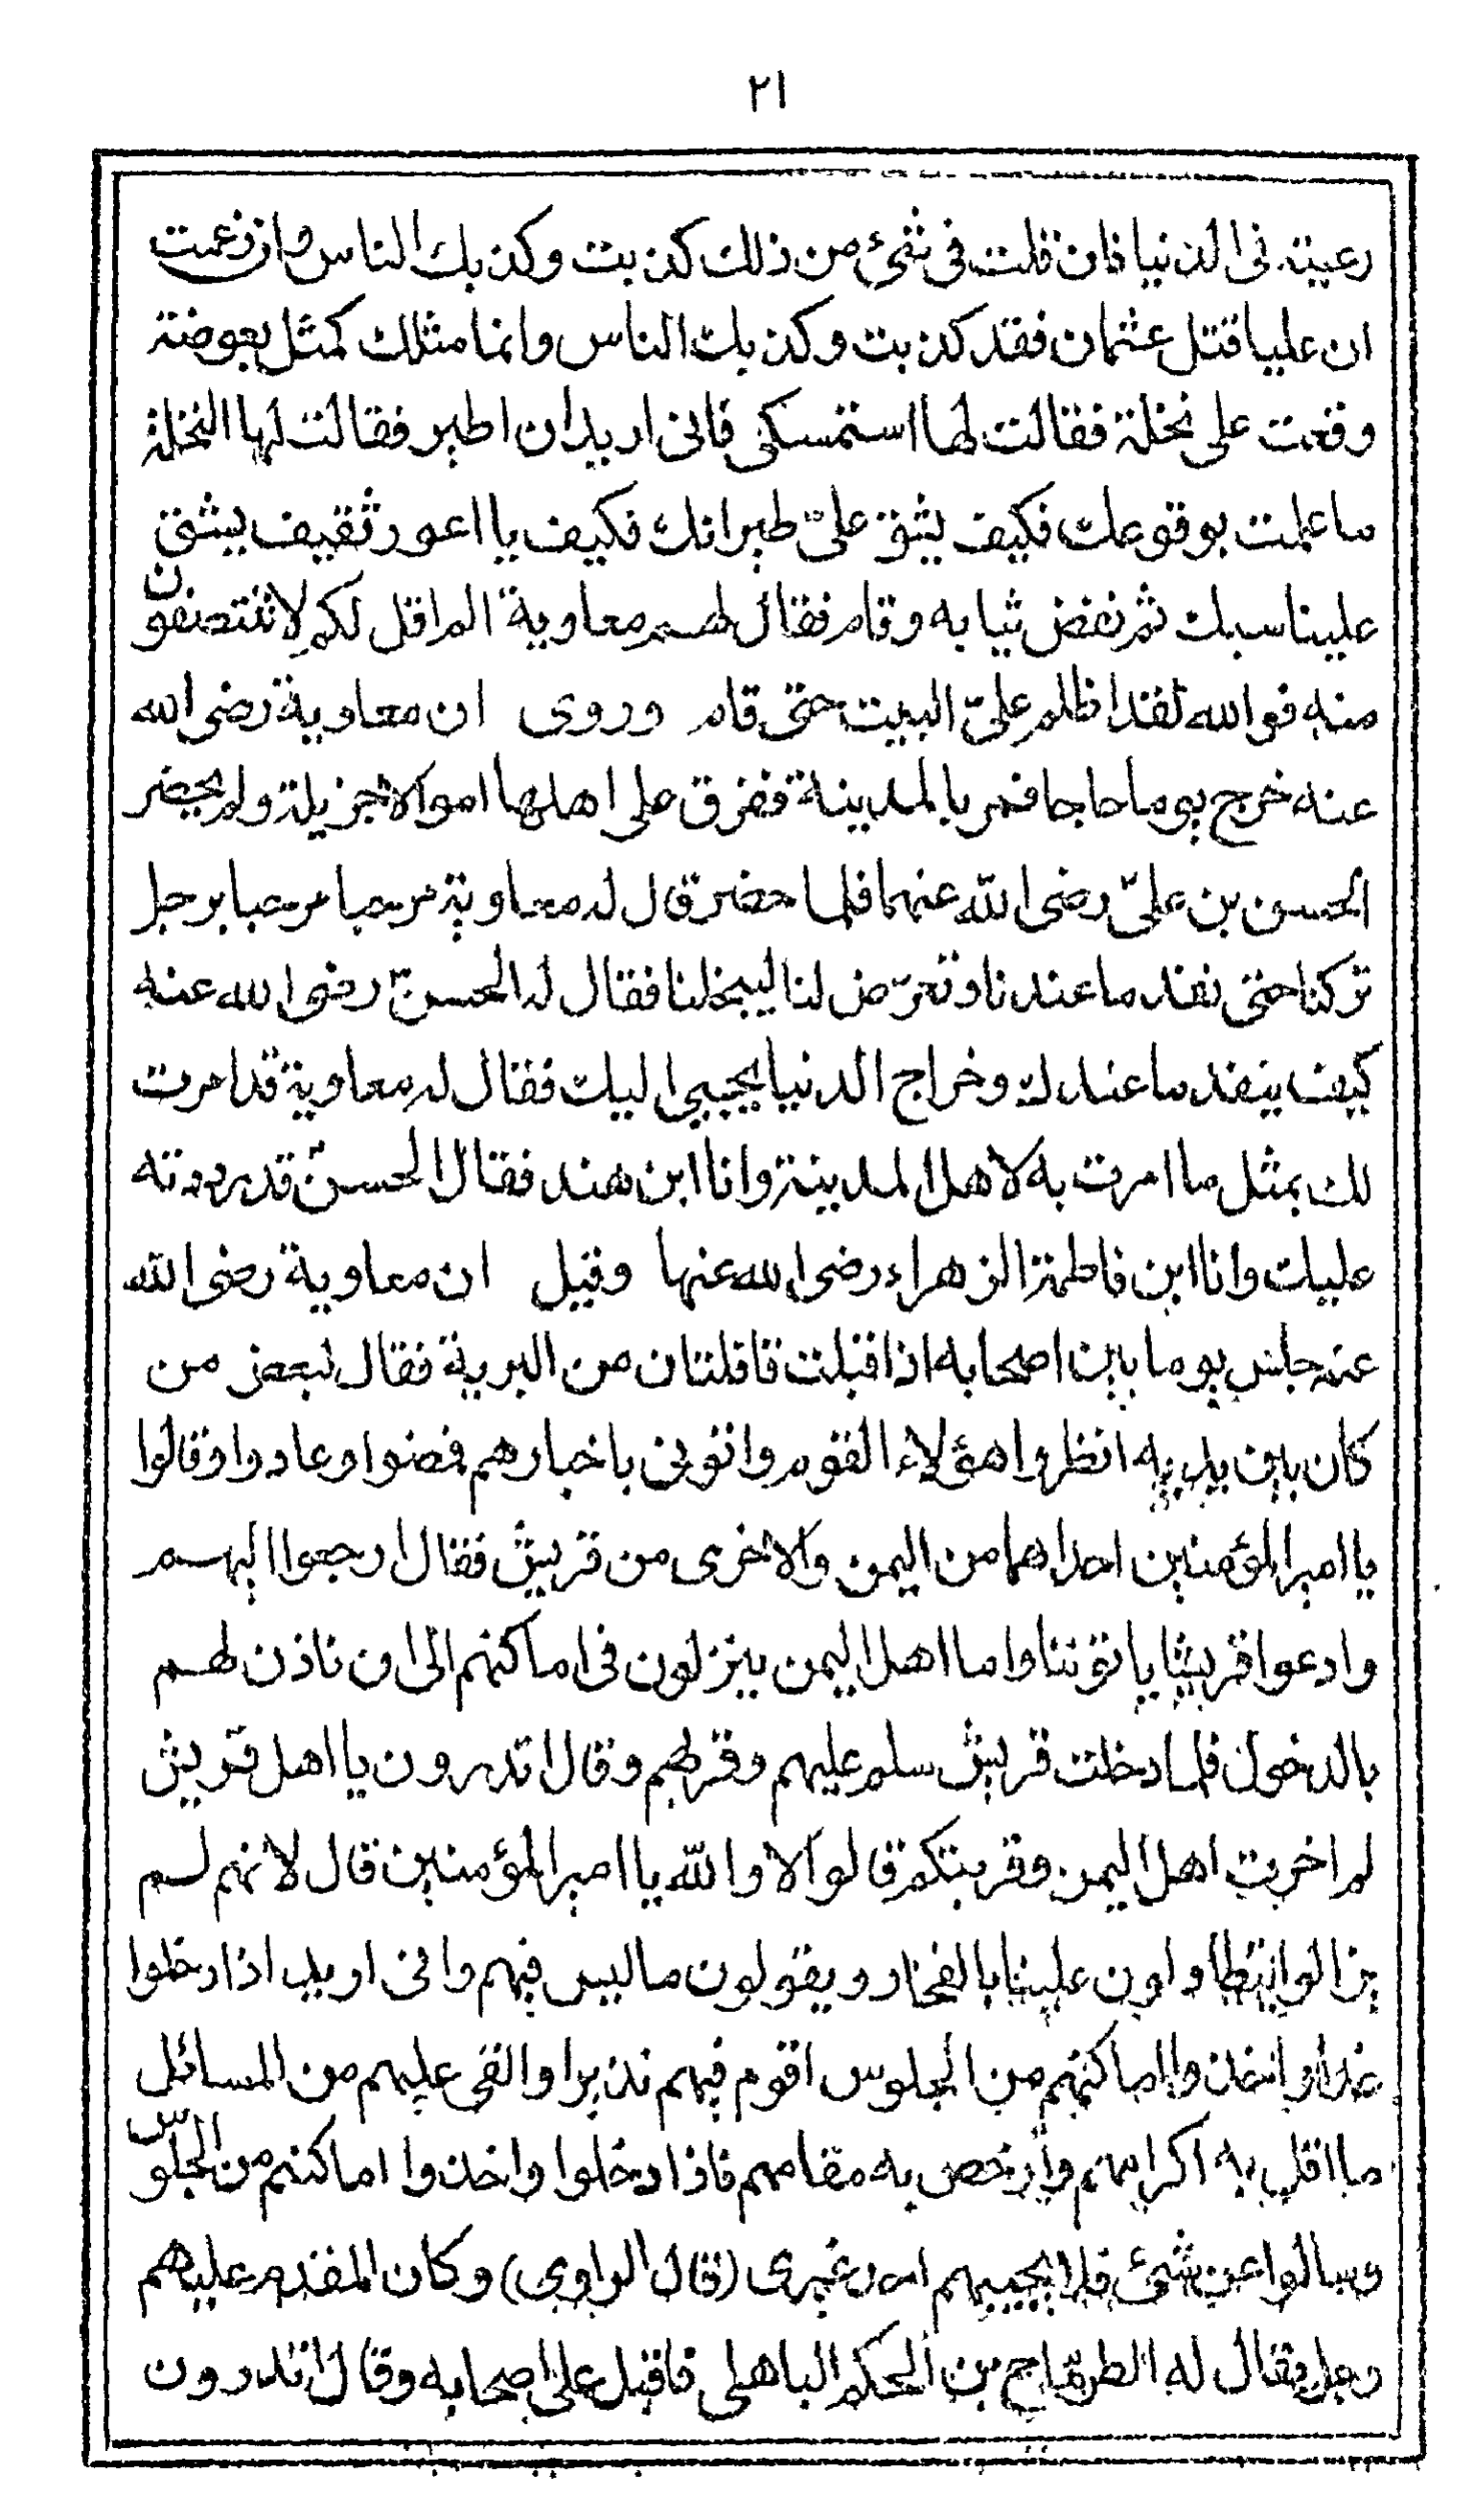 ٢١
رعيته فى الدنيا فان قلت فى شئ من ذلك كذبت وكذبك الناس وان زعمت
ان عليا قتل عثمان فقد كذبت وكذبك الناس وانما مثلك كمثل بعوضة
وقعت على نخلة فقالت لها استمسكى فانى اريد ان اطير فقالت لها النخلة
ما علمت بوقوعك فكيف يشق علىّ طيرانك فكيف يا اعور ثقيف يشق
علينا سبك ثم نفض ثيابه وقام فقال لهم معاوية الم اقل لكم لا تنتصفون
منه فوالله لقد اظلم علىّ البيت حتى قام وروى ان معاوية رضى الله
عنه خرج يوما حاجا فمر بالمدينة ففرق على اهلها اموالا جزيلة ولم يحضر
الحسن بن علىّ رضى الله عنهما فلما حضر قال له معاوية مرحبا مرحبا برجل
تركنا حتى نفد ما عندنا وتعرّض لنا ليبخلنا فقال له الحسن رضى الله عنه
كيف ينفد ما عندك وخراج الدنيا يجيبى اليك فقال له معاوية قد امرت
لك بمثل ما امرت به لاهل المدينة وانا ابن هند فقال الحسن قد رددته
عليك وانا ابن فاطمة الزهراء رضى الله عنها وقيل ان معاوية رضى الله
عنه جلس يوما بين اصحابه اذ اقبلت قافلتان من البرية فقال لبعض من
كان بين يديه انظروا هؤلاء القوم وائتونى باخبارهم فمضوا وعادوا وقالوا
يا امير المؤمنين احداهما من اليمن والاخرى من قريش فقال ارجعوا اليهم
وادعوا قريشا ياتوننا واما اهل اليمن ينزلون فى اماكنهم الى ان ناذن لهم
بالدخول فلما دخلت قريش سلم عليهم وقربهم وقال اتدرون يا اهل قريش
لم اخرت اهل اليمن وقربتكم قالوا لا والله يا امير المؤمنين قال لانهم لم
يزالوا يتطاولون علينا بالفخار ويقولون ما ليس فيهم وانى اريد اذا دخلوا
غدا واتخذوا اماكنهم من الجلوس اقوم فيهم نذيرا والقى عليهم من المسائل
ما اقل به اكرامهم وارخص به مقامهم فاذا دخلوا واخذوا اماكنهم من الجلوس
وسالوا عن شئ فلا يجيبهم احد غيرى (قال الراوى) وكان المقدم عليهم
رجل يقال له الطرمّاح بن الحكم الباهلى فاقبل على اصحابه وقال اتدرون